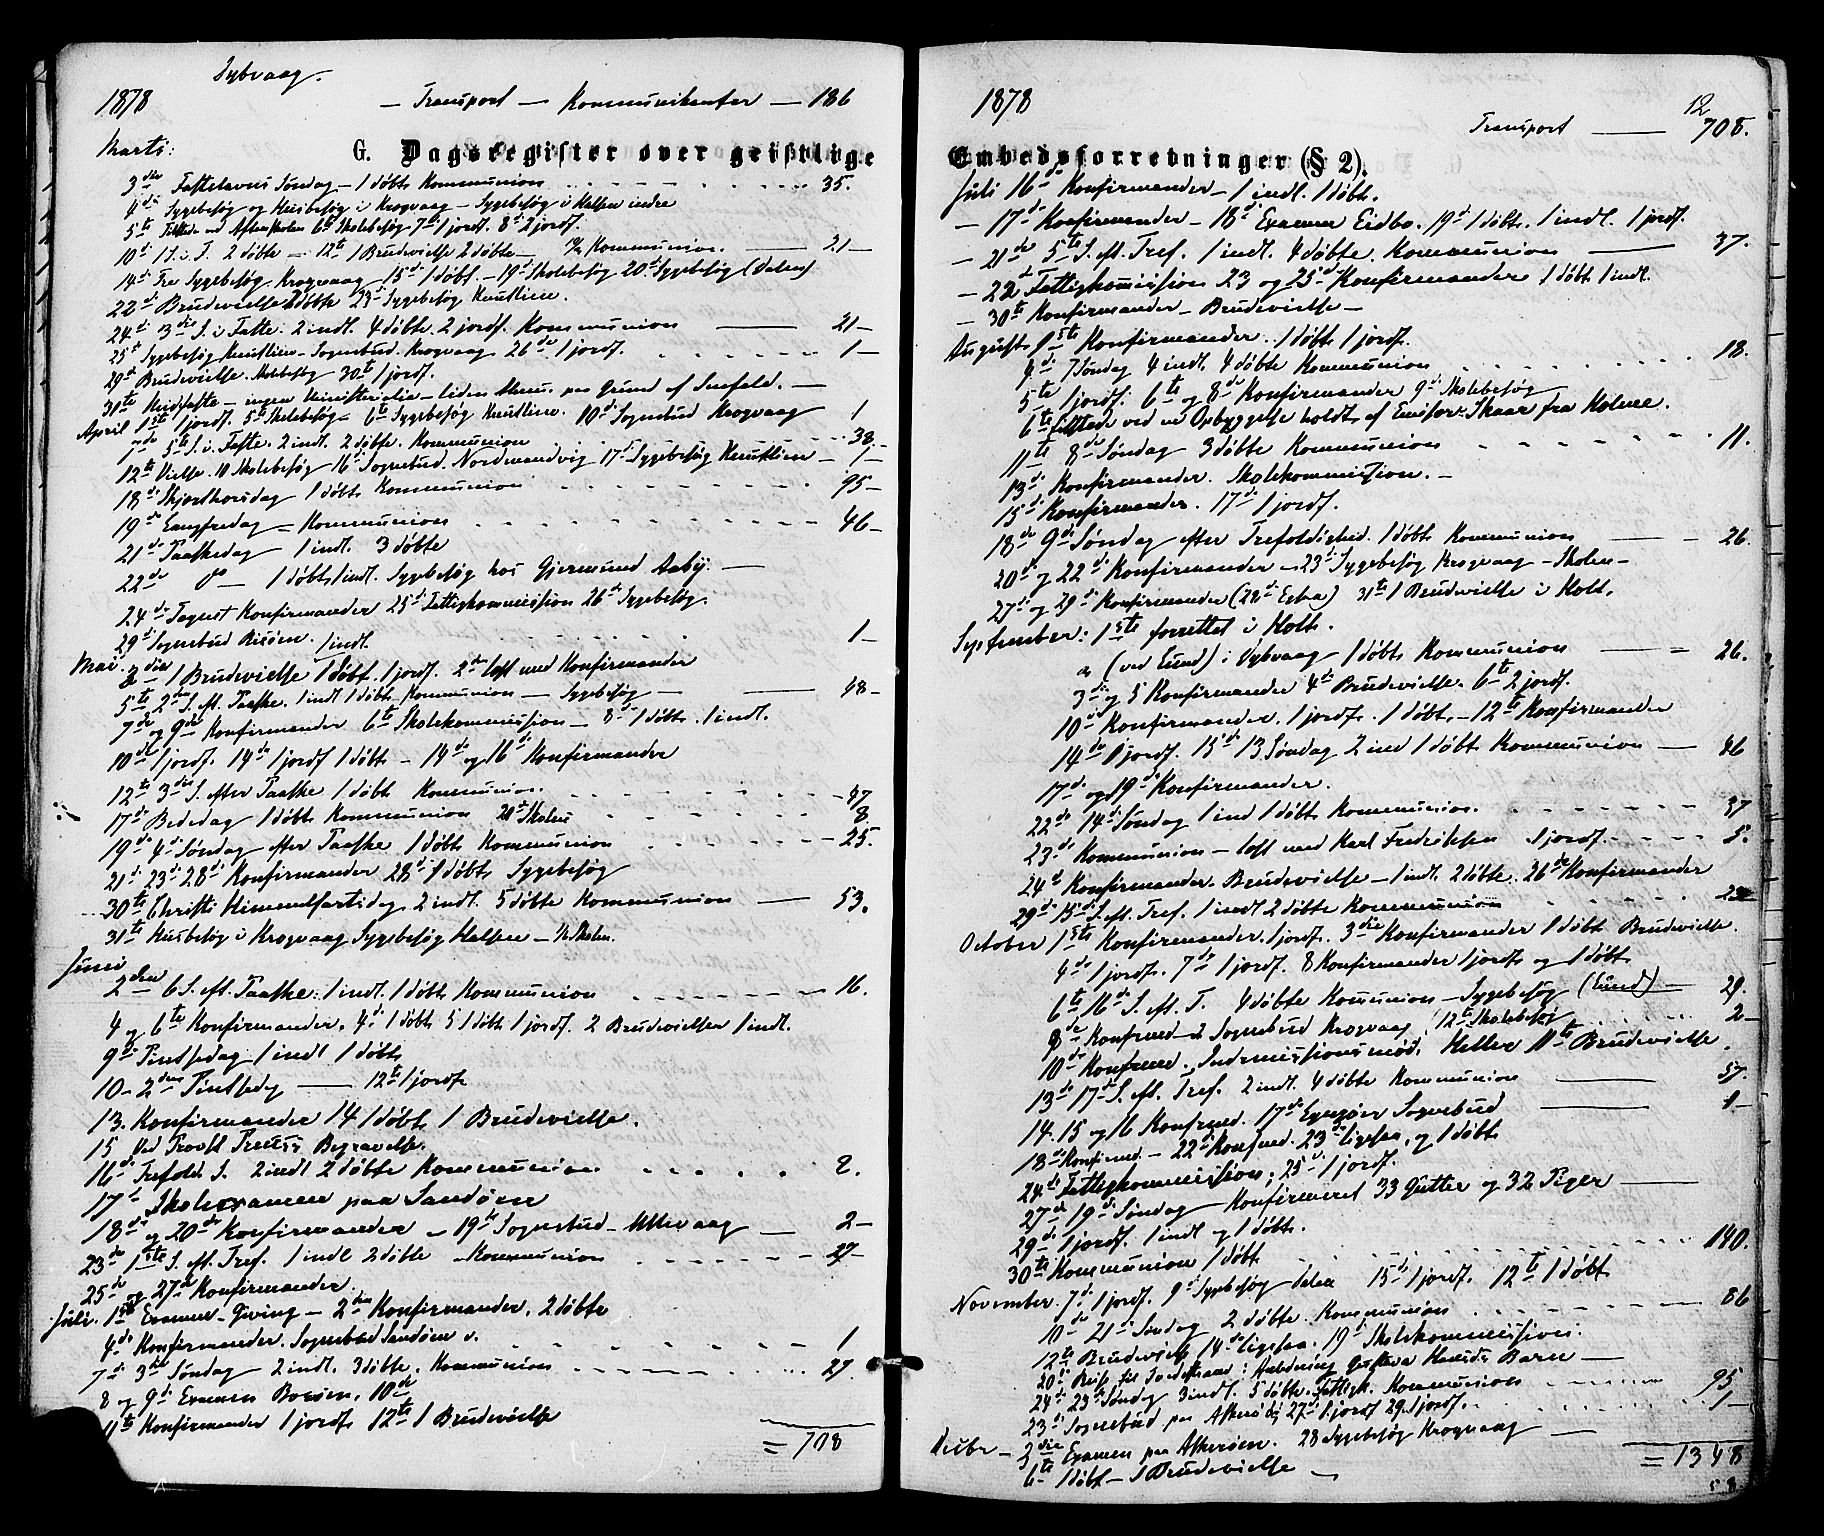 Dybvaag.
1878 — Transport — Kommunikanter — 186
Marts: G. Dagsregister over geistlige
3die Fastelavns Søndag — 1 døbt Kommunion 35.
4de Sygebesøg og Husbesøg i Krogvaag — Sygebesøg i Halsen indre
5te Tilstede ved Aftenskolen 6te Skolebesøg 7de 1 jordf. 8de 2 jordf.
10de 1 S. i F. 2 døbte — 12te 1 Brudevielse 2 døbte — Kommunion. — 21 —
14de Fra Sygebesøg Krogvaag 15de 1 døbt — 19de Skolebesøg 20de Sygebesøg (Dalen)
22de Brudevielse 2 døbte 23de Sygebesøg
24de 3die S. i Faste. 2 indl. 4 døbte. 2 jordf. Kommunion — 21 —
25de Sygebesøg — Sognebud. Krogvaag 26de 1 jordf. 1 —
29de Brudevielse. Skolebesøg 30te 1 jordf.
31te Midfaste — ingen Ministerialia — liden Alm. paa Grund af Snefald. —
April 1ste 1 jordf. 5te Skolebesøg — 6te Sygebesøg 10de Sognebud Krogvaag 1
7de 5te S. i Faste. 2 indl. 2 døbte. Kommunion 38. —
12te Vielse. Skolebesøg 16de Sognebud. Nordmandvig 17de Sygebesøg — 1 —
18de Skjærthorsdag 1 døbt Kommunion 95 —
19de Langfredag — Kommunion 46 —
21de Paaskedag 1 indl. 3 døbte
22de do — 1 døbt 1 indl. Sygebesøg hos Gjermund Aaby. —
24de Tegnet Konfirmander 25de Fattigkommission 26de Sygebesøg.
29de Sognebud Risøen. 1 indl. 1 —
Mai. 3die 1 Brudevielse 1 døbt. 1 jordf. 2den læst med Konfirmander
5te 2den S. eft. Paaske. 1 indl 1 døbt. Kommunion — Sygebesøg — 48 —
7de og 9de Konfirmander 6te Skolekommission — 8de 1 døbt. 1 indl.
10de 1 jordf. 14de 1 jordf 1 døbt — 14de og 16de Konfirmander
12te 3die S. efter Paaske 1 døbt Kommunion. 47
17de Bededag 1 døbt Kommunion Skolen 8.
19de 4de Søndag efter Paaske 1 døbt Kommunion 25.
21de 23de 28de Konfirmander 28de 1 døbt Sygebesøg
30te Christi Himmelfartsdag 2 indl. 5 døbte Kommunion — 53.
31te Husbesøg i Krogvaag Sygebesøg Halsen — Skolen.
Juni
2den 6 S. eft. Paaske: 1 indl. 1 døbt Kommunion 16.
4 og 6te Konfirmander. 4de 1 døbt 5 1 døbt 1 jordf. 2 Brudevielser 1 indl.
9de Pintsedag 1 indl 1 døbt
10 — 2den Pintsedag — 12te 1 jordf
13. Konfirmander 14 1 døbt 1 Brudevielse.
15 Ved Provst Begravelse.
16de Trefold. S. 2 indl 2 døbte Kommunion 2.
17de Skolexamen paa Sandøen
18de og 20de Konfirmander — 19de Sognebud — Utlevaag — 2 —
23de 1ste S. eft. Tref. 1 indl 2 døbte Kommunion 27 —
25de og 27de Konfirmander.
Juli. 1ste Examen Gjeving — 2den Konfirmander. 2 døbte
4de Konfirmander. Sognebud Sandøen 1
7de 3die Søndag 2 indl. 3 døbte. Kommunion 27.
8 og 9de Examen Borøen. 10de
11te Konfirmander 1 jordf. 12te 1 Brudevielse
= 708
12
1878 Transport — 708.
Embedsforretninger (§ 2).
Juli 16de Konfirmander — 1 indl. 1 døbt.
— 17de Konfirmander — 18de Examen Eidbo. 19de 1 døbt. 1 indl. 1 jordf.
— 21de 5te S. eft. Tref. 1 indl. 4 døbte. Kommunion — 37.
— 22de Fattigkommission 23 og 25de Konfirmander 1 døbt 1 indl.
— 30te Konfirmander — Brudevielse —
August 1ste Konfirmander. 1 døbt 1 jordf.
4de 7 Søndag 4 indl. 4 døbte Kommunion 18.
5te 1 jordf. 6te og 8de Konfirmander 9de Skolebesøg
6te Tilstede ved en Opbyggelse holdt af Emissær Skaar fra Holme.
11te 8de Søndag 3 døbte Kommunion 11.
13de Konfirmander. Skolekommission. —
15de Konfirmander. 17de 1 jordf.
18de 9de Søndag efter Trefoldighed. 1 døbt Kommunion — 26.
20de og 22de Konfirmander — 23de Sygebesøg Krogvaag — Skolen —
27de og 29de Konfirmander (28de ) 31te 1 Brudevielse i Holt.
September: 1ste forrettet i Holt.
a (ved Lund) i Dybvaag 1 døbt Kommunion — 26.
3die og 5 Konfirmander 4de Brudevielse. 6te 2 jordf.
10de Konfirmander. 1 jordf. 1 døbt. — 12te Konfirmander
14de 1 jordf. 15de 13 Søndag 2 ind 1 døbt Kommunion — 46
17de og 19de Konfirmander.
22de 14de Søndag 1 ind 1 døbt Kommunion. 37
23de Kommunion — læst med Karl Fredriksen 1 jordf. 5.
24de Konfirmander. Brudevielse — 1 indl. 2 døbte. 26de Konfirmander
29de 15de S. eft. Tref. 1 indl 2 døbte Kommunion 23
October 1ste Konfirmander. 1 jordf. 3die Konfirmander 1 døbt Brudevielse.
4de 1 jordf. 7de 1 jordf. 8 Konfirmander 1 jordf. og 1 døbt
6te 16de S. eft. T. 4 døbte Kommunion — Sygebesøg (Lund) — 29.
8de Konfirmd — Sognebud Krogvaag 12te Skolebesøg 2 —
10de Konfirmd. Indremissionsmød. Heller 11te Brudevielse.
13de 17de S. eft. Tref. 2 indl. 4 døbte Kommunion — 57.
14. 15 og 16 Konfirmd. 17de Sognebud — 1 —
18de Konfirmd. — 22de Konfirmd. 23de ligesaa, og 1 døbt
24de Fattigkommission; 25de 1 jordf.
27de 19de Søndag — Konfirmeret 33 Gutter og 32 Piger —
29de 1 jordf. 1 indl og 1 døbt.
30te Kommunion 1 døbt 140.
November. 7de 1 jordf. 9de Sygebesøg Dalen 15de 1 jordf. 12te 1 døbt
10de 21de Søndag 2 døbte. Kommunion 86
12te Brudevielse 14de ligesaa. 19de Skolekommission.
20de Reise til i Anledning Barn —
24de 23de Søndag 3 indl. 5 døbte. Fattigk. Kommunion 95
23de Sognebud paa Askerøen 27de 1 jordf 29. 1 jordf. 1 —
Decbr — 3die Examen paa Askerøen. 28 Sygebesøg Krogvaag —
6te 1 døbt — 1 Brudevielse —
= 1348
58